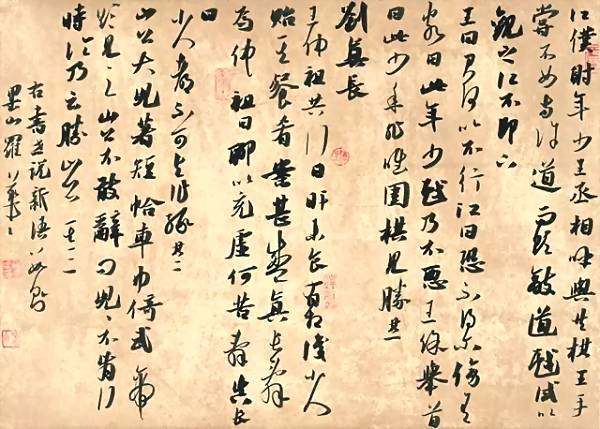 江僕射年少王丞相呼與共棋王手
嘗不如兩道而欲敵道戲試以
觀之江不即下
王曰君何以不行江曰恐不得爾傍有
客曰此年少戲乃不惡王徐舉首
曰此少年非唯圍棋見勝其一
劉真長
王仲祖共行日旰未食有相識小人
貽其餐肴案甚盛真長辭
焉仲祖曰聊以充虛何苦辭真長
曰
小人都不可與作緣其二
山公大兒著短帢車中倚武帝
欲見之山公不敢辭問兒兒不肯行
時論乃云勝山公其三
右書世說新語
山羅